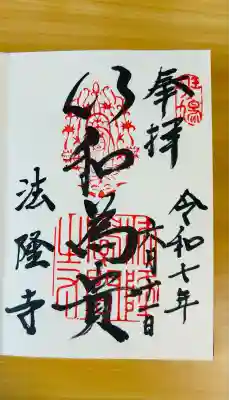 奉拝
令和七年
六月十一日
以和為貴
法隆寺